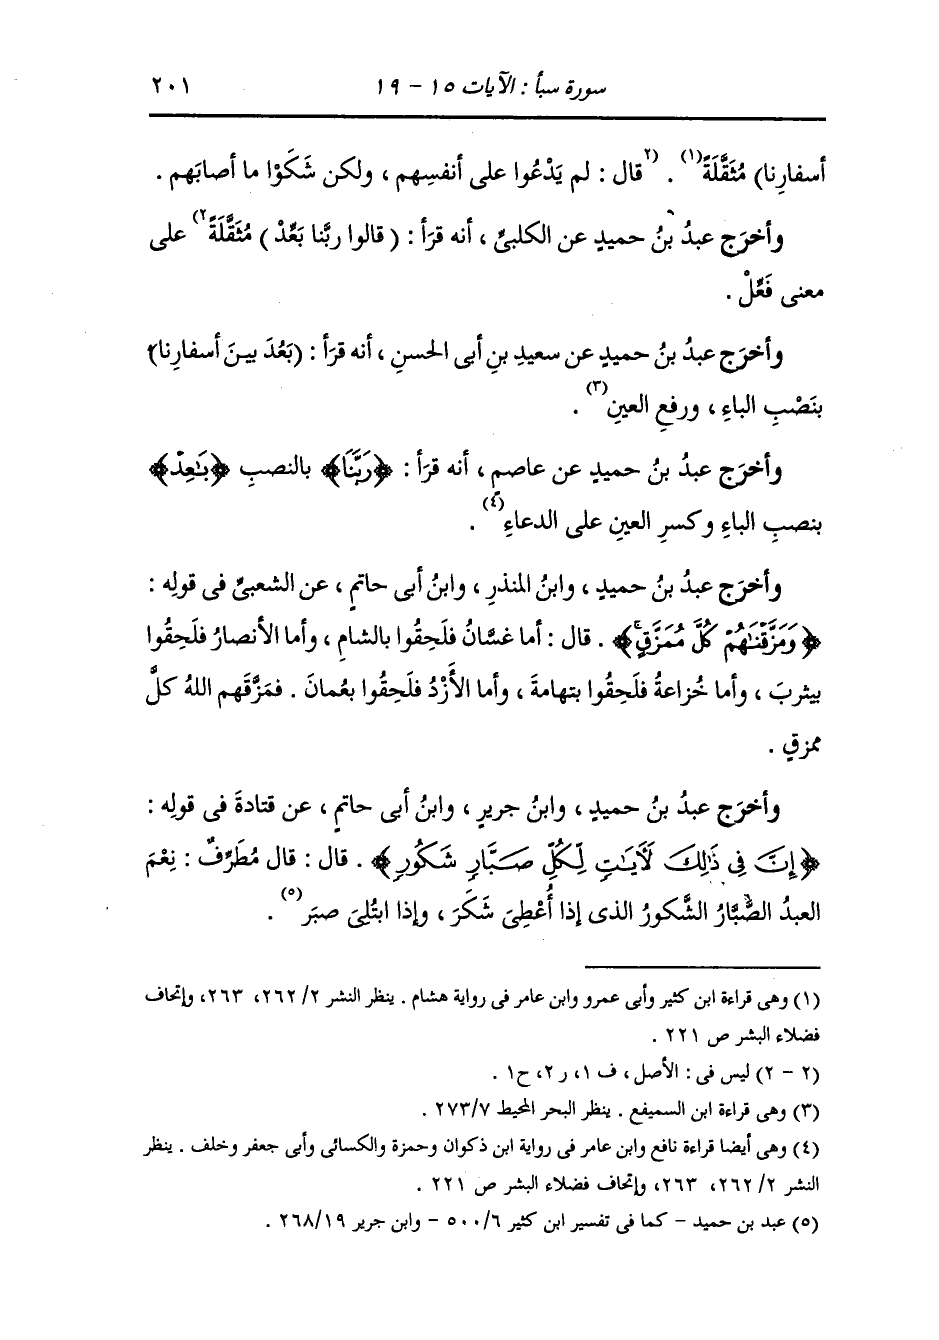 سورة سبأ : الآيات ١٥ - ١٩ ٢٠١
أسفارِنا) مُثَقَّلَةً(١) . (٢قال : لم يَدْعُوا على أنفسِهم ، ولكن شَكَوْا ما أصابَهم .
وأخرَج عبدُ بنُ حميدٍ عن الكلبىِّ ، أنه قرَأ : ( قالوا ربَّنا بَعِّدْ ) مُثَقَّلَةً٢) على
معنى فَعِّلْ .
وأخرَج عبدُ بنُ حميدٍ عن سعيدِ بنِ أبى الحسنِ ، أنه قرَأ : (بَعُدَ بينَ أسفارِنا)
بنَصْبِ الباءِ ، ورفعِ العينِ(٣) .
وأخرَج عبدُ بنُ حميدٍ عن عاصمٍ ، أنه قرَأ : ﴿رَبَّنَا﴾ بالنصبِ ﴿بَٰعِدْ﴾
بنصبِ الباءِ وكسرِ العينِ على الدعاءِ(٤) .
وأخرَج عبدُ بنُ حميدٍ ، وابنُ المنذرِ ، وابنُ أبى حاتمٍ ، عن الشعبىِّ فى قولِه :
﴿وَمَزَّقْنَٰهُمْ كُلَّ مُمَزَّقٍ﴾ . قال : أما غسَّانُ فلَحِقُوا بالشامِ ، وأما الأنصارُ فلَحِقُوا
بيثربَ ، وأما خُزاعةُ فلَحِقُوا بتهامةَ ، وأما الأَزْدُ فلَحِقُوا بعُمانَ . فمَزَّقهم اللهُ كلَّ
ممزقٍ .
وأخرَج عبدُ بنُ حميدٍ ، وابنُ جريرٍ ، وابنُ أبى حاتمٍ ، عن قتادةَ فى قولِه :
﴿إِنَّ فِي ذَٰلِكَ لَآيَٰتٍ لِّكُلِّ صَبَّارٍ شَكُورٍ﴾ . قال : قال مُطَرِّفٌ : نِعْمَ
العبدُ الصَّبَّارُ الشَّكورُ الذى إذا أُعْطِىَ شَكَرَ ، وإذا ابتُلِىَ صبَر(٥) .
(١) وهى قراءة ابن كثير وأبى عمرو وابن عامر فى رواية هشام . ينظر النشر ٢/ ٢٦٢، ٢٦٣، وإتحاف
فضلاء البشر ص ٢٢١ .
(٢ - ٢) ليس فى : الأصل ، ف ١، ر ٢، ح١ .
(٣) وهى قراءة ابن السميفع . ينظر البحر المحيط ٢٧٣/٧ .
(٤) وهى أيضا قراءة نافع وابن عامر فى رواية ابن ذكوان وحمزة والكسائى وأبى جعفر وخلف . ينظر
النشر ٢/ ٢٦٢، ٢٦٣، وإتحاف فضلاء البشر ص ٢٢١ .
(٥) عبد بن حميد - كما فى تفسير ابن كثير ٥٠٠/٦ - وابن جرير ٢٦٨/١٩ .